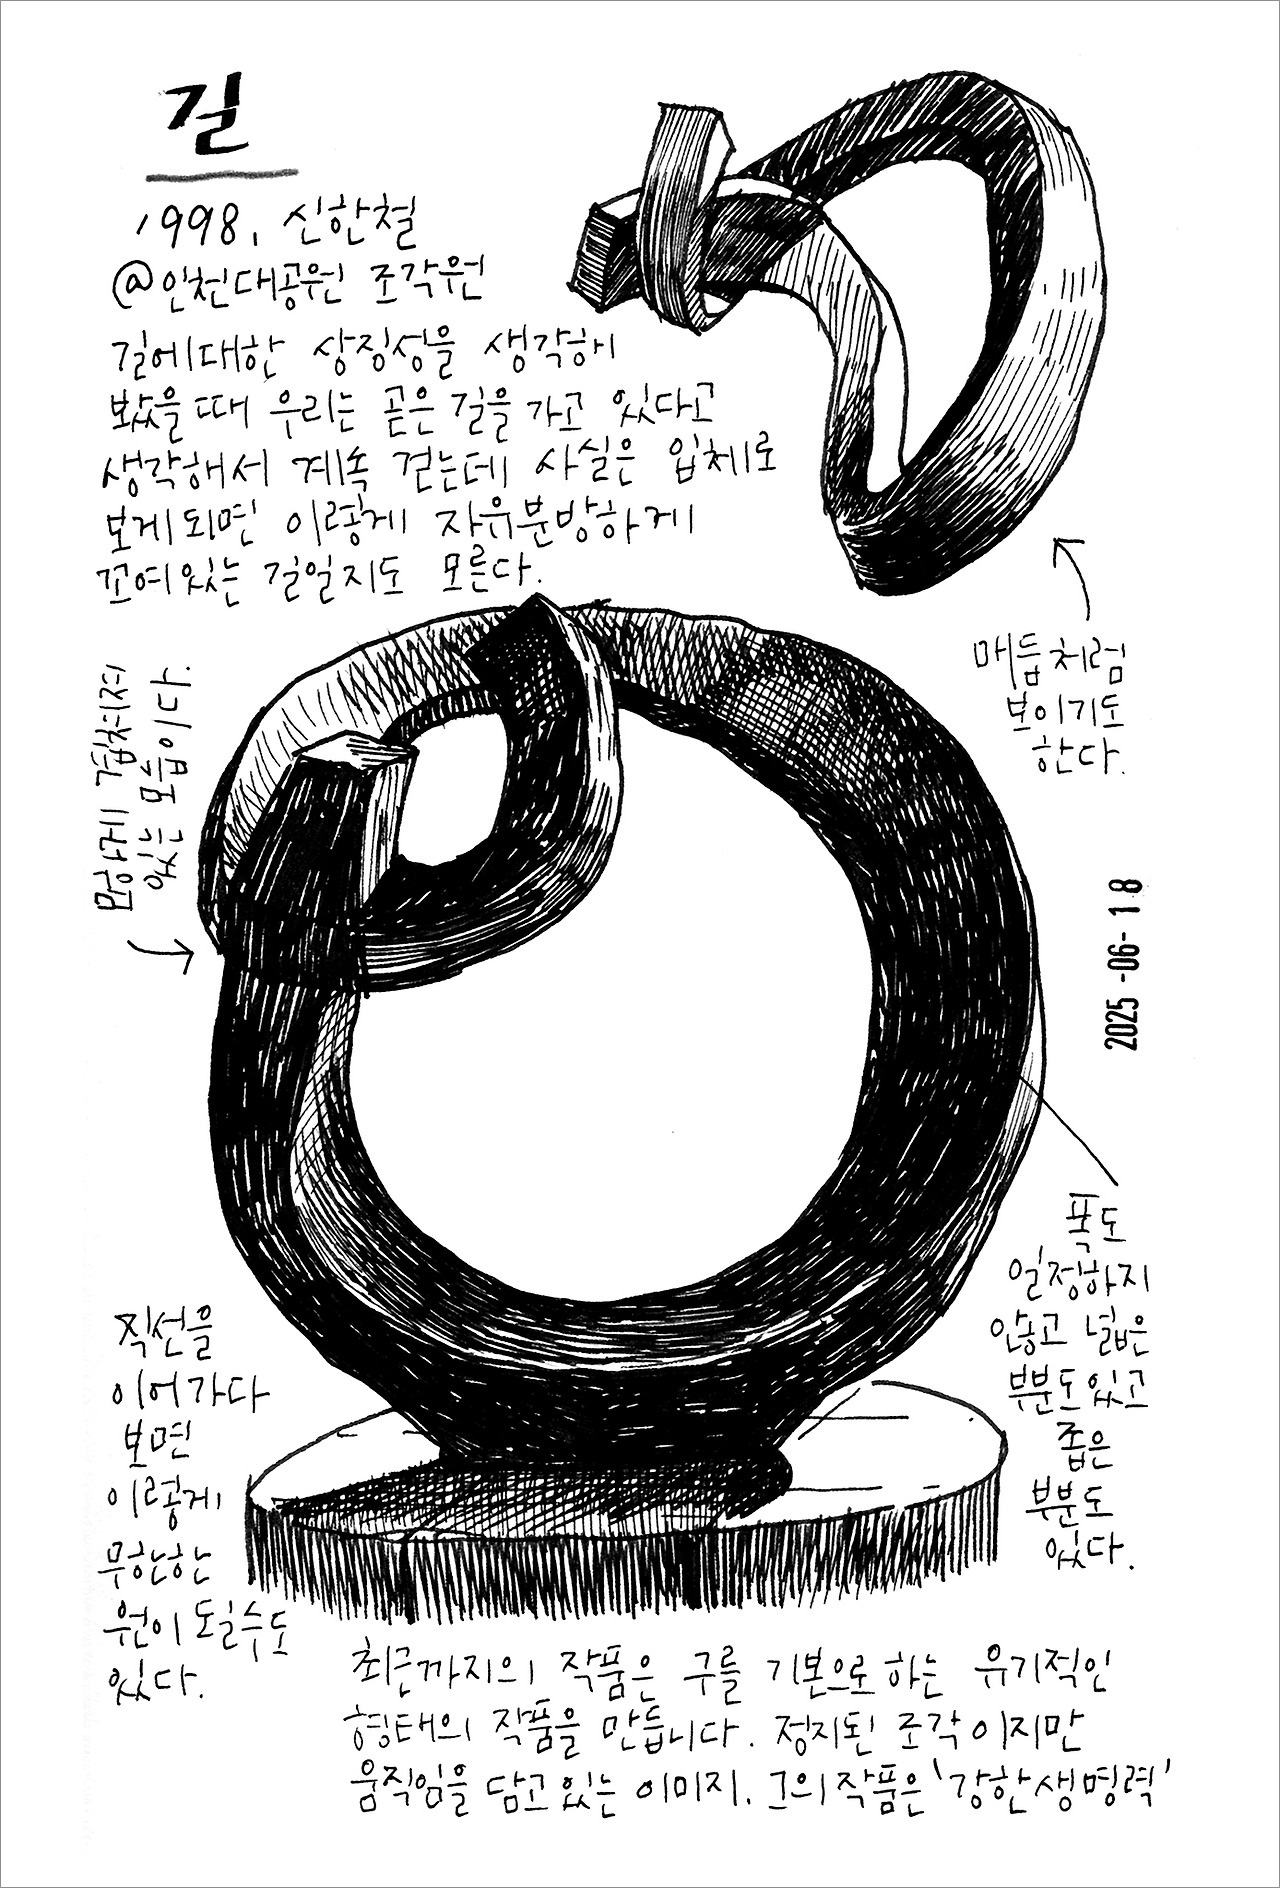 길
1998, 신한철
@인천대공원 조각원
길에대한 상징성을 생각해
봤을때 우리는 곧은 길을 가고 있다고
생각해서 계속 걷는데 사실은 입체로
보게되면 이렇게 자유분방하게
꼬여있는 길일지도 모른다.
매듭처럼
보이기도
한다.
묘하게 겹쳐져
있는 모습이다.
2025-06-18
폭도
일정하지
않고 넓은
부분도있고
좁은
부분도
있다.
직선을
이어가다
보면
이렇게
무한한
원이 될수도
있다.
최근까지의 작품은 구를 기본으로 하는 유기적인
형태의 작품을 만듭니다. 정지된 조각이지만
움직임을 담고있는 이미지. 그의작품은 '강한생명력'